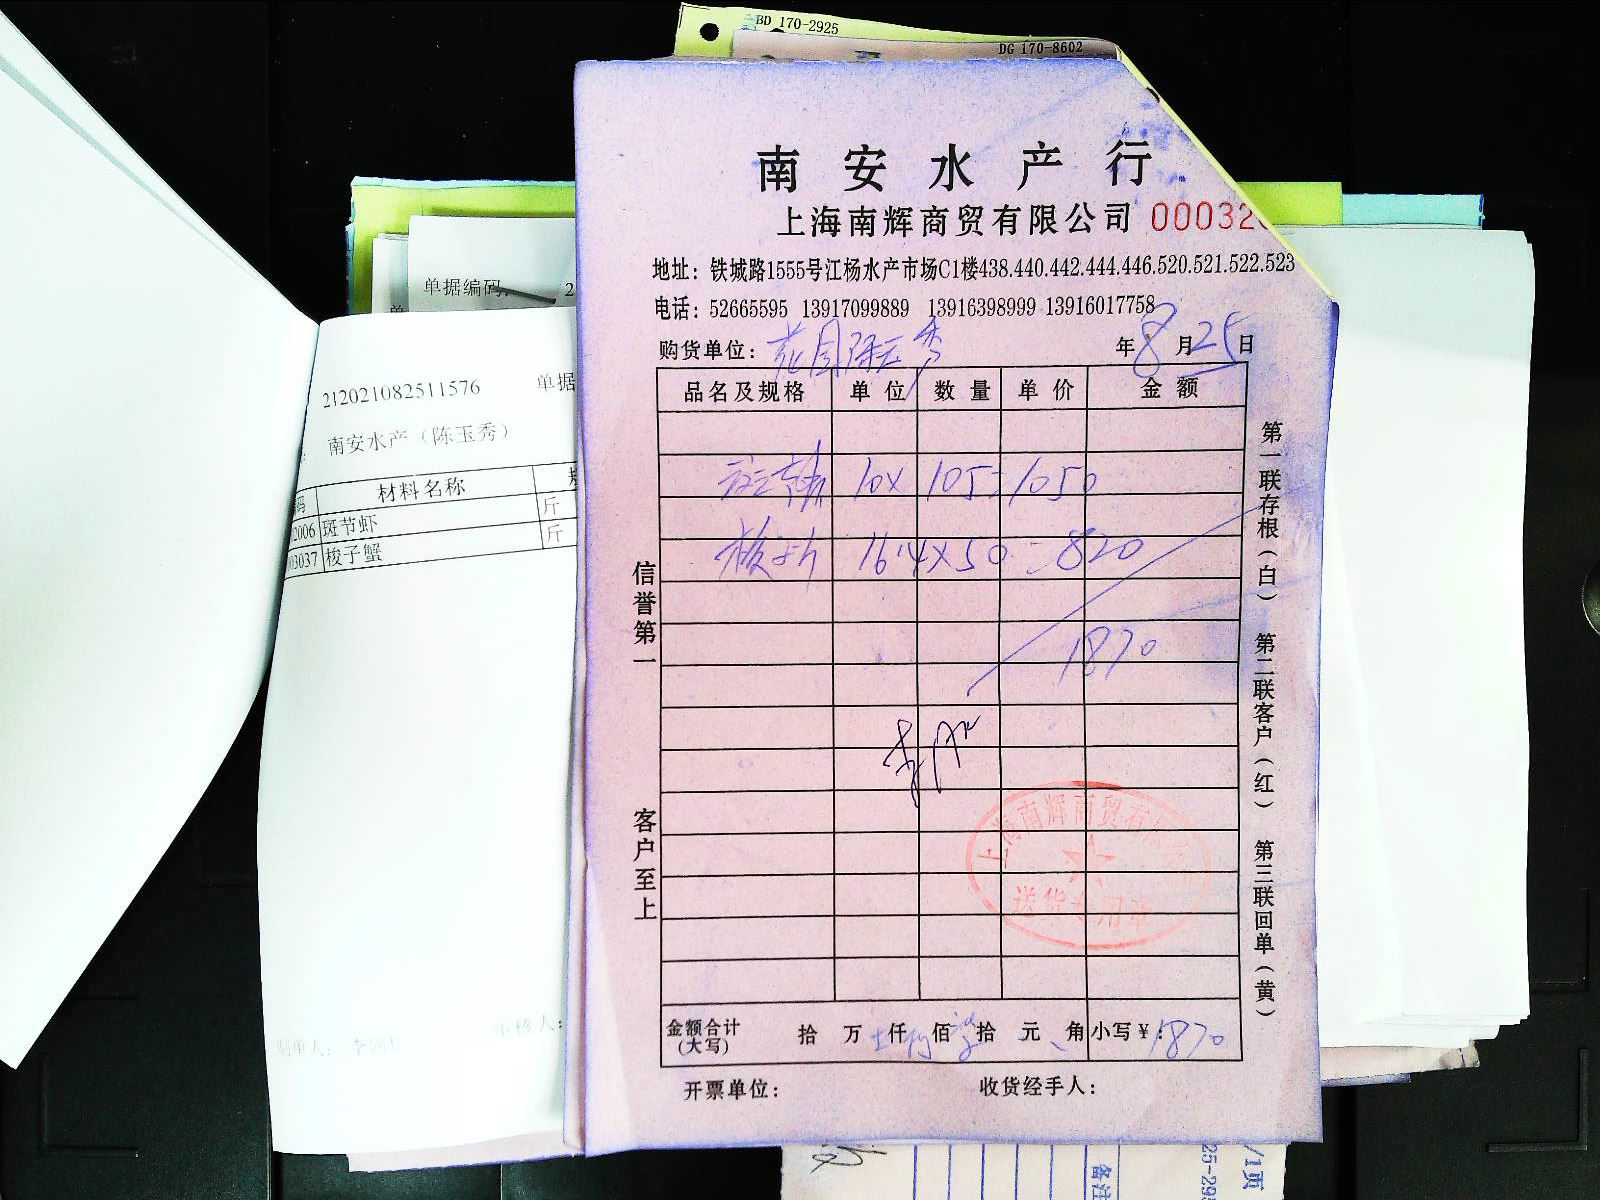 BD 170-2925
DG 170-8602
南安水产行
上海南辉商贸有限公司 00032
地址：铁城路1555号江杨水产市场C1楼438.440.442.444.446.520.521.522.523
电话：52665595 13917099889 13916398999 13916017758
购货单位： 年8月25日
品名及规格 单位 数量 单价 金额
10× 105=1050
16.4×50=820
1870
金额合计(大写) 拾 万 仟 佰 拾 元 角 小写￥：1870
开票单位： 收货经手人：
信誉第一 客户至上
第一联存根（白） 第二联客户（红） 第三联回单（黄）
上海南辉商贸有限公司
送货专用章
单据编码： 2
212021082511576 单据
南安水产（陈玉秀）
码 材料名称
2006 斑节虾 斤
03037 梭子蟹 斤
制单人： 审核人：
/1页
25-295
备注